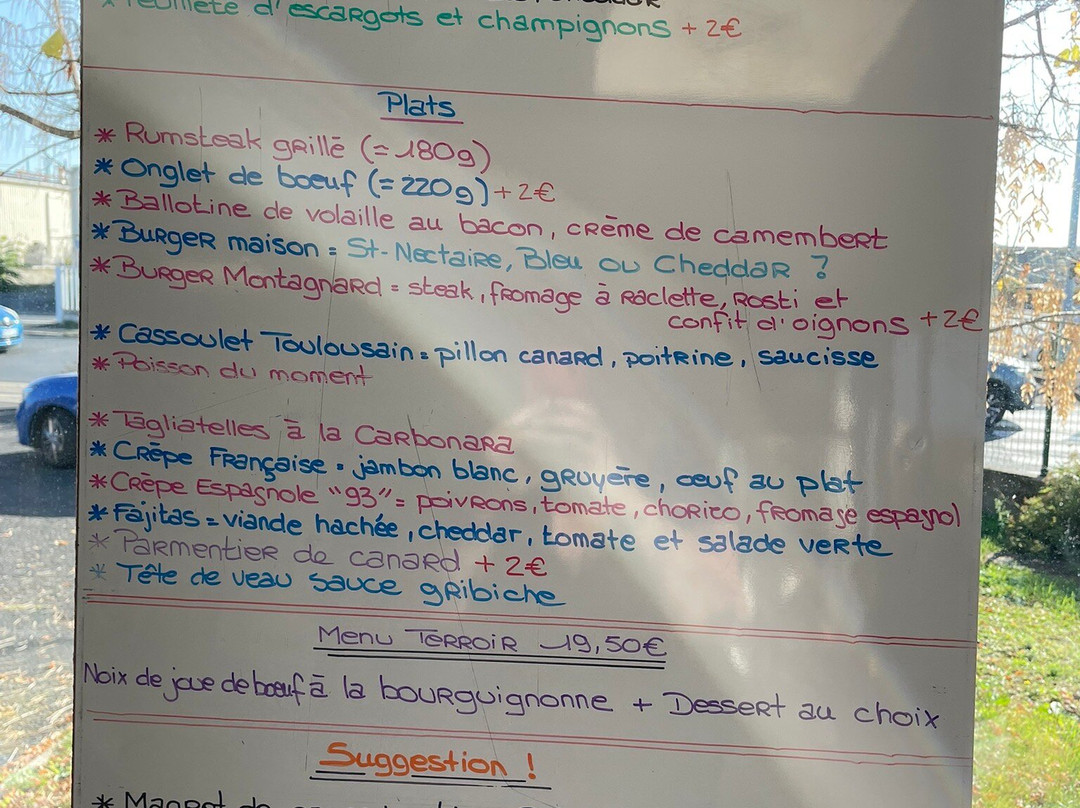 * Feuilleté d'escargots et champignons + 2€
Plats
* Rumsteak grillé (= 180g)
* Onglet de boeuf (= 220g) + 2€
* Ballotine de volaille au bacon, crème de camembert
* Burger maison = St-Nectaire, Bleu ou Cheddar ?
* Burger Montagnard = steak, fromage à raclette, rosti et
confit d'oignons + 2€
* Cassoulet Toulousain = pillon canard, poitrine, saucisse
* Poisson du moment
* Tagliatelles à la Carbonara
* Crêpe Française = jambon blanc, gruyère, oeuf au plat
* Crêpe Espagnole "93" = poivrons, tomate, chorizo, fromage espagnol
* Fajitas = viande hachée, cheddar, tomate et salade verte
* Parmentier de canard + 2€
* Tête de veau sauce gribiche
Menu Terroir 19,50€
Noix de joue de boeuf à la bourguignonne + Dessert au choix
Suggestion !
* Magret de